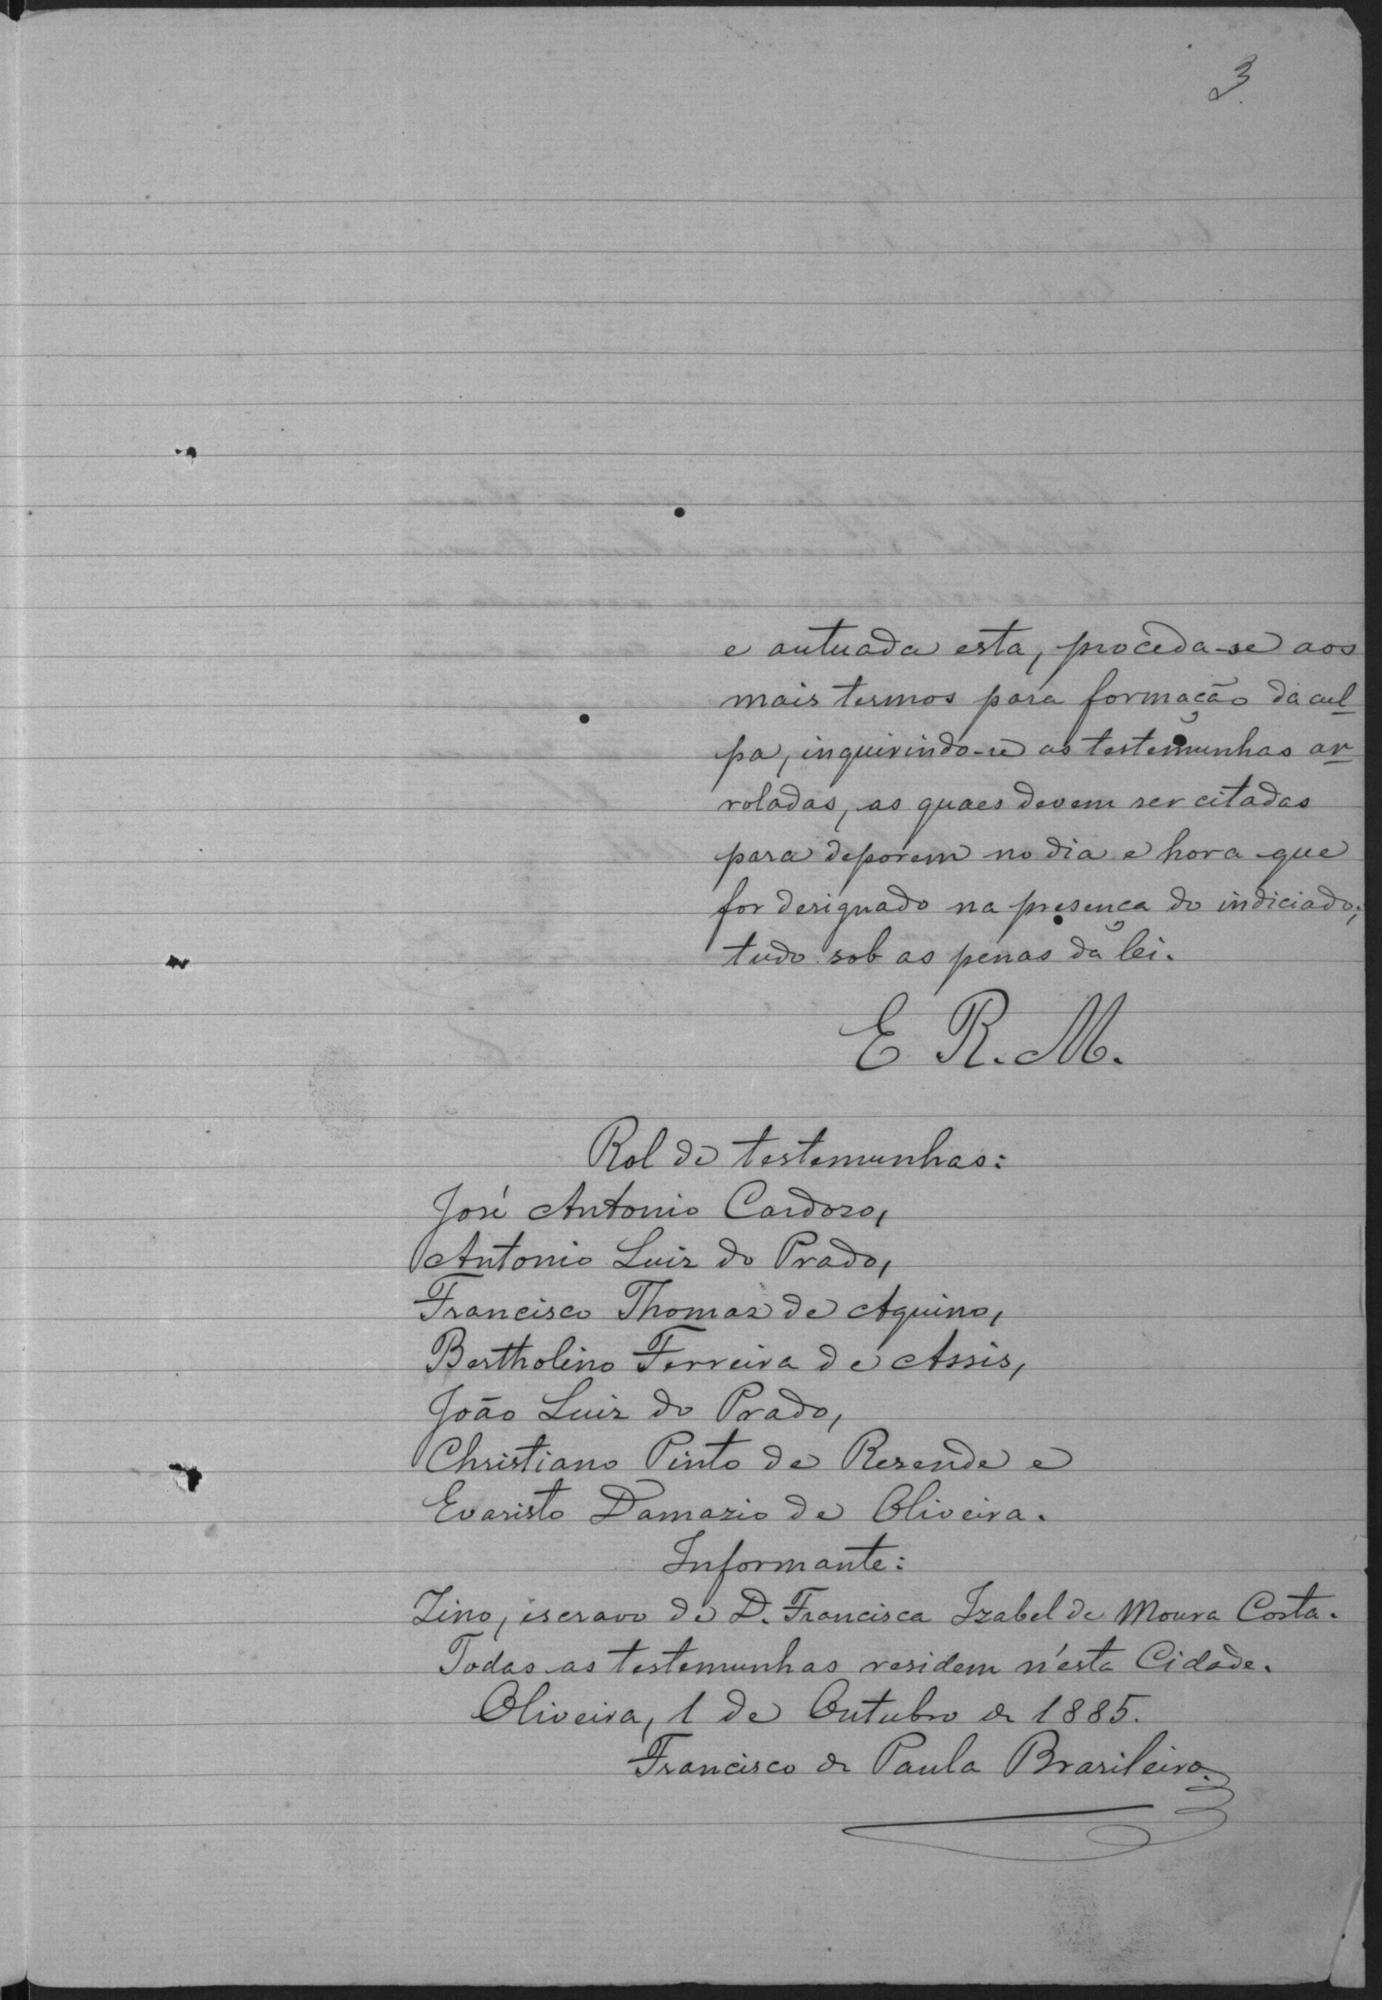 3
e autuada esta, proceda-se aos
mais termos para formação da cul-
pa, inquirindo-se as testemunhas ar-
roladas, as quaes devem ser citadas
para deporem no dia e hora que
for designado na presença do indiciado;
tudo sob as penas da lei.
E. R. M.
Rol de testemunhas:
José Antonio Cardozo,
Antonio Luiz do Prado,
Francisco Thomaz de Aquino,
Bertholino Ferreira de Assis,
João Luiz do Prado,
Christiano Pinto de Rezende e
Evaristo Damazio de Oliveira.
Informante:
Lino, escravo de D. Francisca Izabel de Moura Costa.
Todas as testemunhas residem n'esta Cidade.
Oliveira, 1 de Outubro de 1885.
Francisco de Paula Brasileiro.